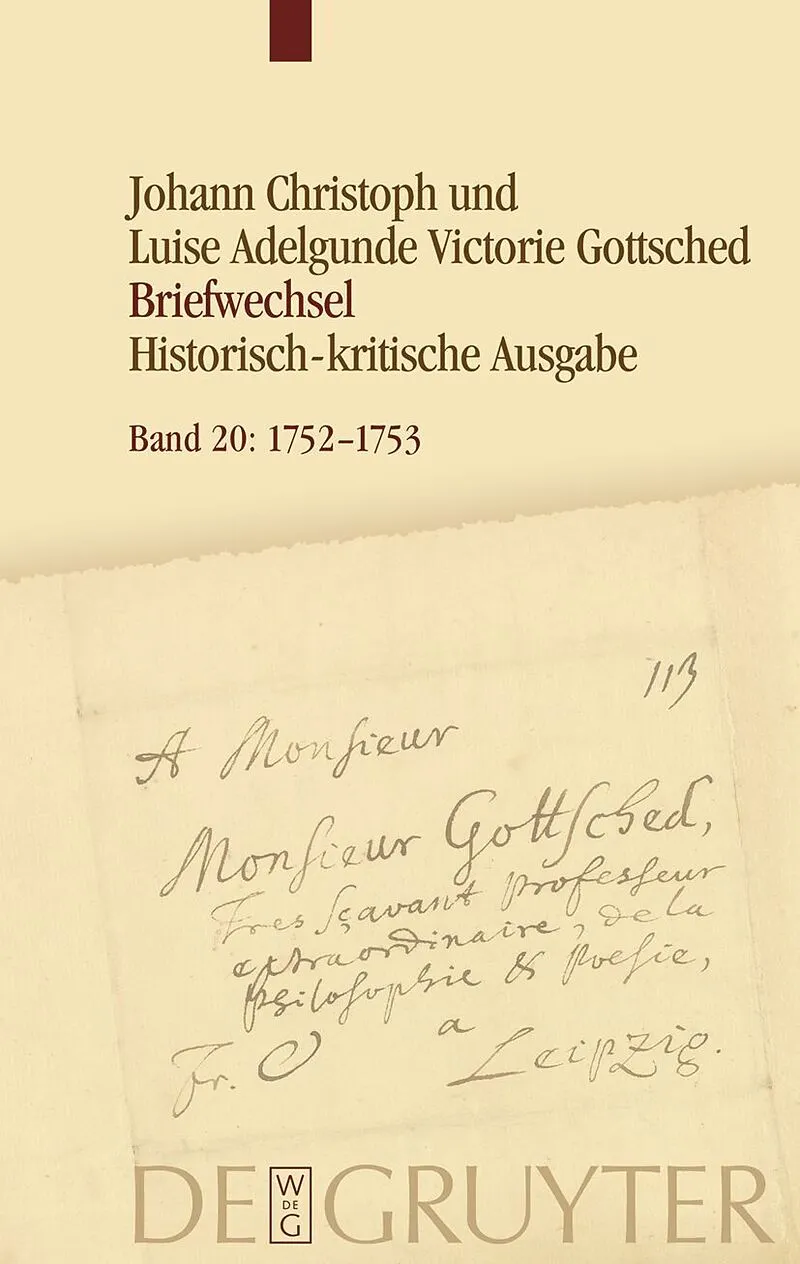 Johann Christoph und
Luise Adelgunde Victorie Gottsched
Briefwechsel
Historisch-kritische Ausgabe
Band 20: 1752–1753
113
A Monsieur
Monsieur Gottsched,
Tres sçavant professeur
extraordinaire, de la
Philosophie & Poesie,
a
Fr. Leipzig.
DE W DE G GRUYTER